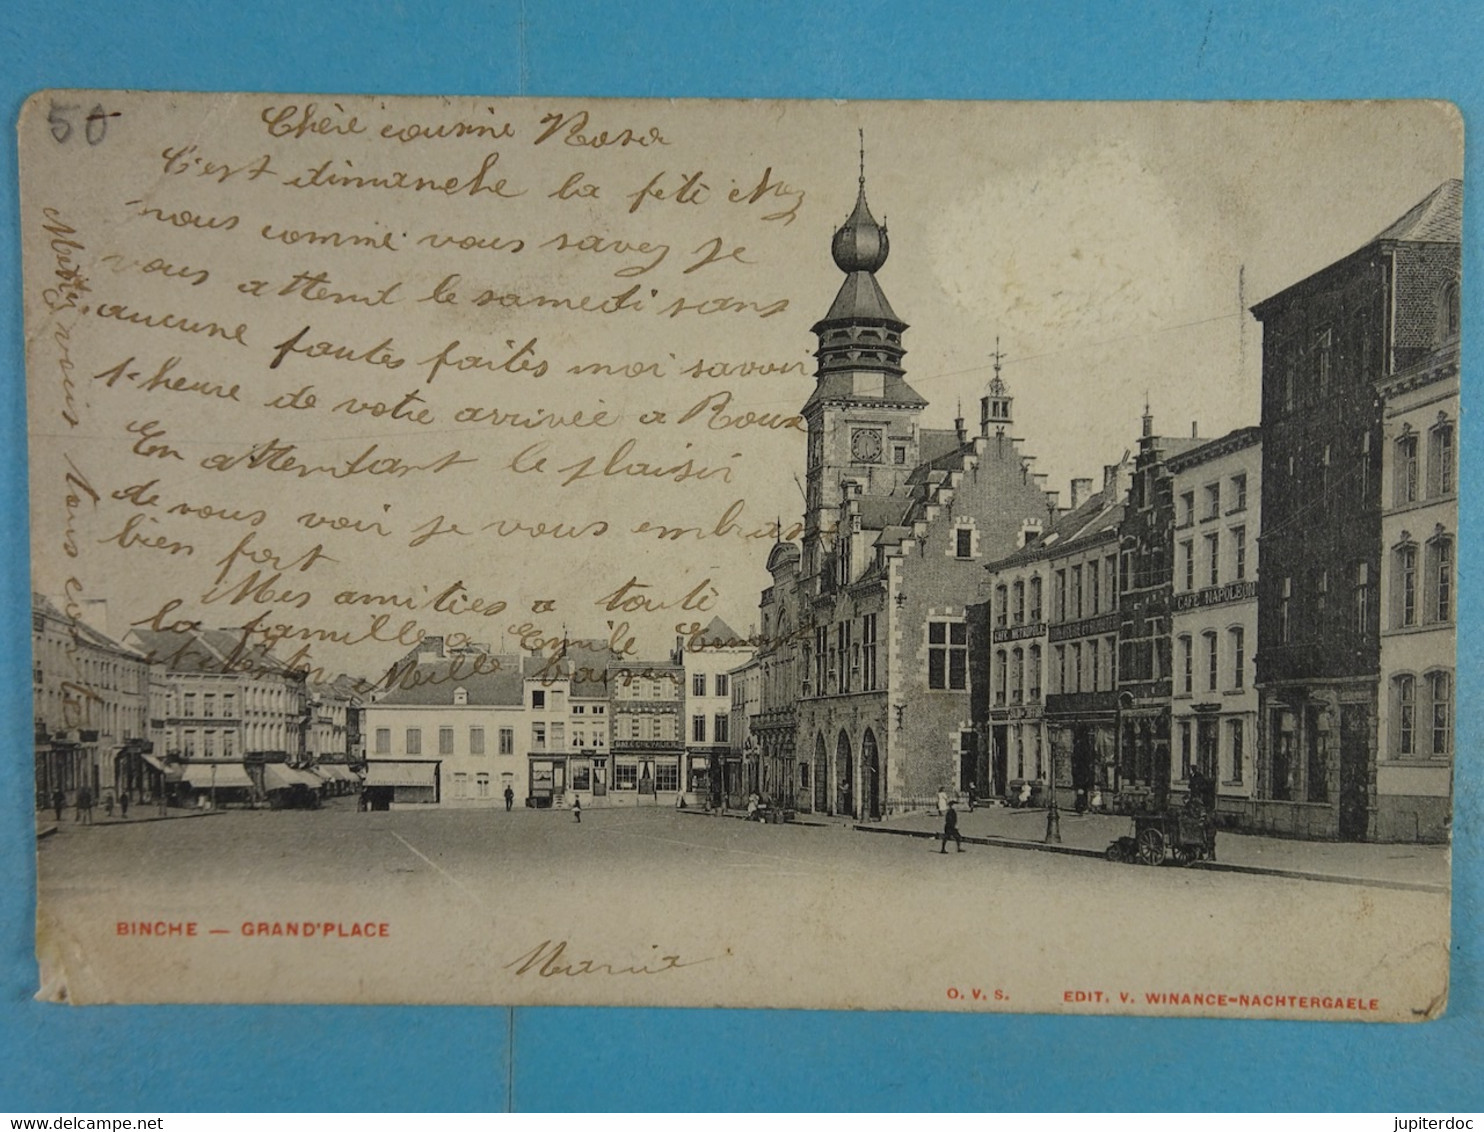 50
Chère cousine Rosa
C'est dimanche la fête chez
nous comme vous savez je
vous attend le samedi sans
aucune fautes faites moi savoir
l'heure de votre arrivée a Roux
En attentant le plaisir
de vous voir je vous embrasse
bien fort
Mes amitiés a toute
la famille a Emile
et Mille baisers
vous tous
CAFE METROPOLE
CAFE NAPOLEON
BINCHE — GRAND'PLACE
Maria
O. V. S. EDIT. V. WINANCE-NACHTERGAELE
www.delcampe.net
jupiterdoc